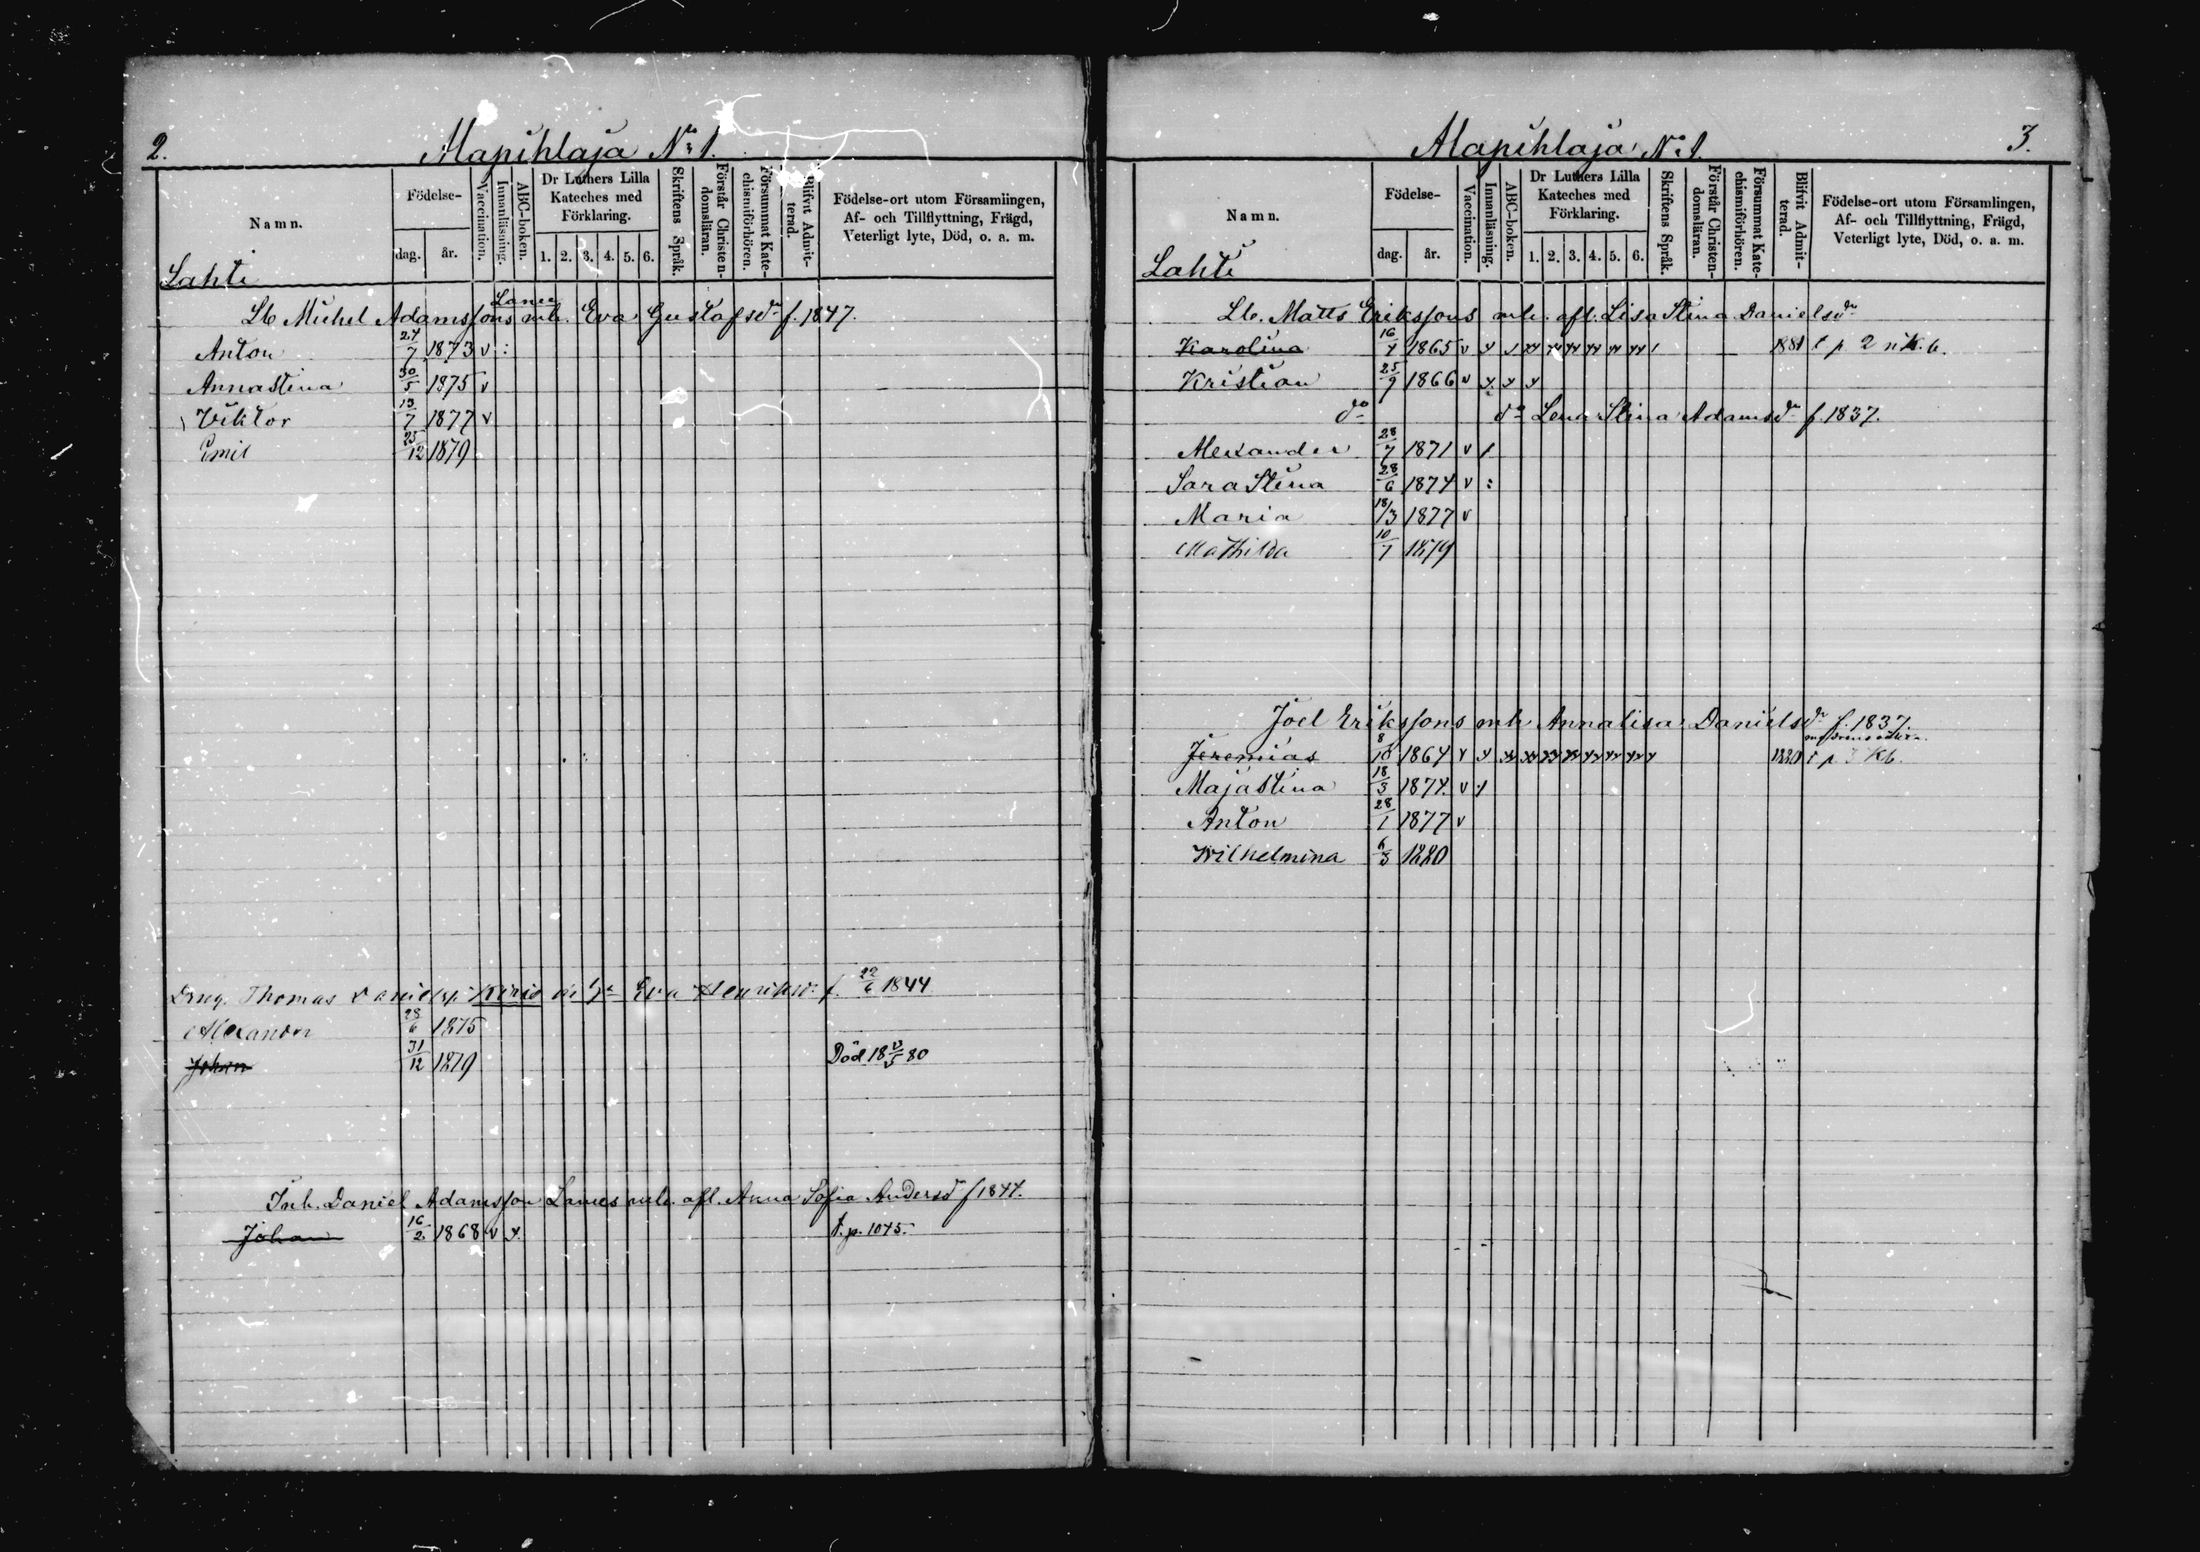 2.
Alapihlaja No 1.
Namn.
Födelse-
dag.
år.
Vaccination.
Innanläsning.
ABC-boken.
Dr Luthers Lilla Kateches med Förklaring.
1. 2. 3. 4. 5. 6.
Skriftens Språk.
Förstår Christen-domsläran.
Försummat Kate-chismiförhören.
Blifvit Admit-terad.
Födelse-ort utom Församlingen, Af- och Tillflyttning, Frägd, Veterligt lyte, Död, o. a. m.
Lahti
Lanes
Lb Michel Adamssons mh. Eva Gustafsdr f. 1847.
Anton 24/7 1873 v :
Annastina 30/5 1875 v
Viktor 13/7 1877 v
Emil 23/12 1879
Dreng. Thomas Danielss: h: Eva Henriksdr f. 22/6 1844
Alexander 28/6 1875
Johan 31/12 1879 Död 18 /5 80
Inh. Daniel Adamsson Lanes mh. afl. Anna Sofia Andersdr f 1847.
Johan 16/2 1868 v x. t. p. 1045.
3.
Alapihlaja No 1.
Namn.
Födelse-
dag.
år.
Vaccination.
Innanläsning.
ABC-boken.
Dr Luthers Lilla Kateches med Förklaring.
1. 2. 3. 4. 5. 6.
Skriftens Språk.
Förstår Christen-domsläran.
Försummat Kate-chismiförhören.
Blifvit Admit-terad.
Födelse-ort utom Församlingen, Af- och Tillflyttning, Frägd, Veterligt lyte, Död, o. a. m.
Lahti
Lb. Matts Erikssons mh. afl. Lisa Stina Danielsdr
Karolina 16/4 1865 v 1881 t p 2 n K. b.
Kristian 25/9 1866 v x x x
do do Lena Stina Adamsdr f. 1837.
Alexander 28/7 1871 v /
Sara Stina 28/6 1874 v :
Maria 18/3 1877 v
Mathilda 10/7 1879
Joel Erikssons mh Annalisa Danielsdr f. 1837.
Jeremias 8/10 1864 v x 1880 t p 3 Kb.
Majastina 18/3 1874. v /
Anton 28/1 1877 v
Wilhelmina 6/3 1880